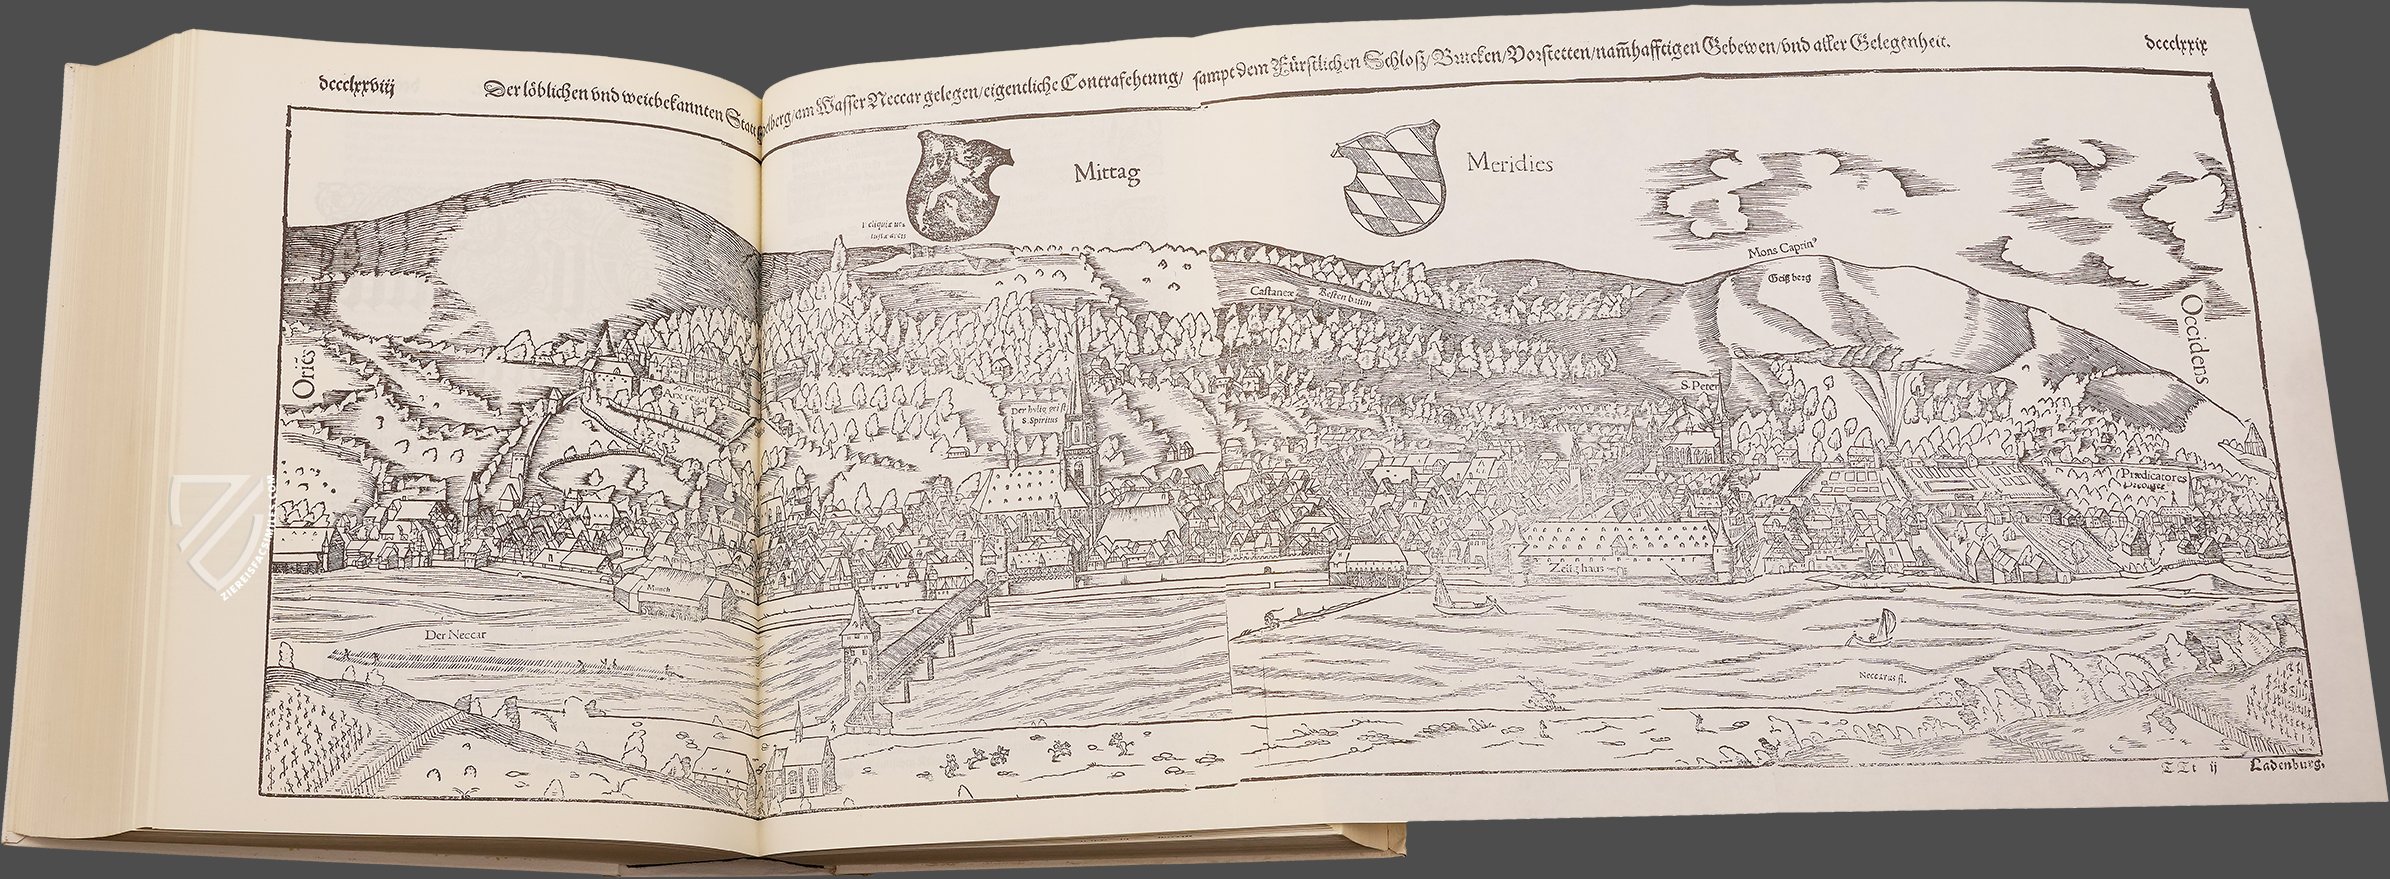 dccclxxviij
Der löblichen vnd weitbekannten Statt
delberg/am Wasser Neccar gelegen/eigentliche Contrafehtung/ sampt dem Fürstlichen Schloß/Brucken/Vorstetten/nam̃hafftigen Gebewen/vnd aller Gelegenheit.
dccclxxix
Mittag
Meridies
Mons Caprinꝰ
Geißberg
Castaneæ
Kesten baum
Oriēs
Occidens
S. Peter
Der heilig geist
S. Spiritus
Prædicatores
Prediger
Zeughaus
Der Neccar
Neccarus fl.
TTt ij
Ladenburg.
ZIEREISFACSIMILES.COM